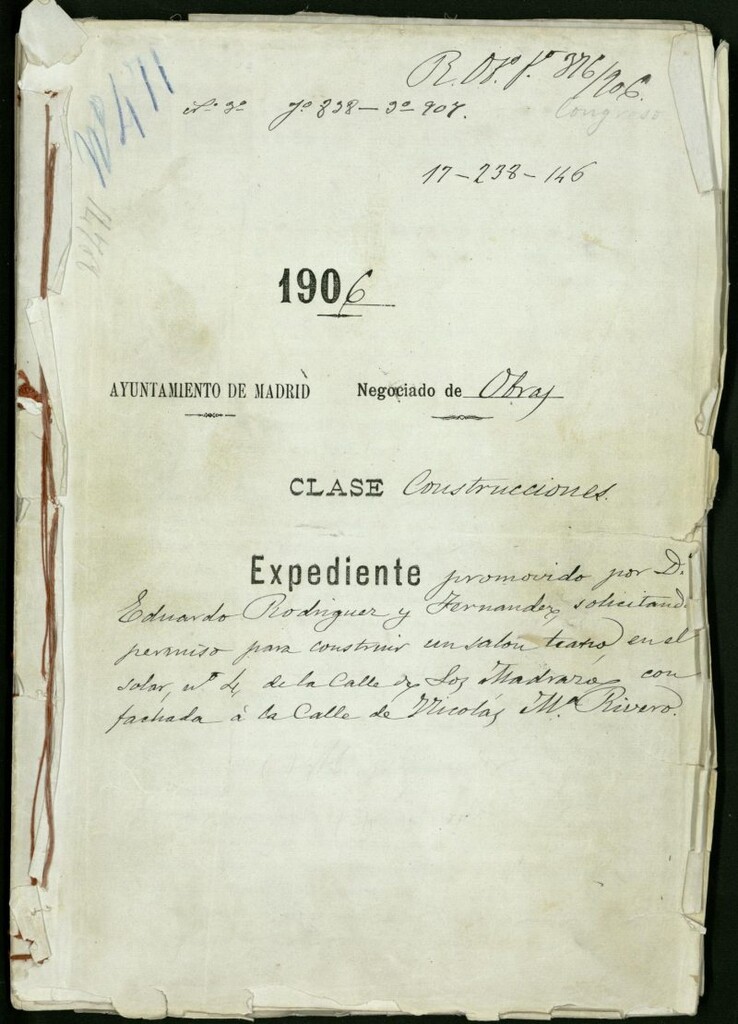 R. Oª. fº 376/906.
Nº 471
Congreso
Nº 3º Jº 838 - 3º 907.
17-238-146
Nº 471
1906
AYUNTAMIENTO DE MADRID Negociado de Obras
CLASE Construcciones.
Expediente promovido por D.
Eduardo Rodriguez y Fernandez, solicitando
permiso para construir un salon teatro, en el
solar, nº 4, de la Calle de Los Madrazo, con
fachada á la Calle de Nicolás Mª Rivero.